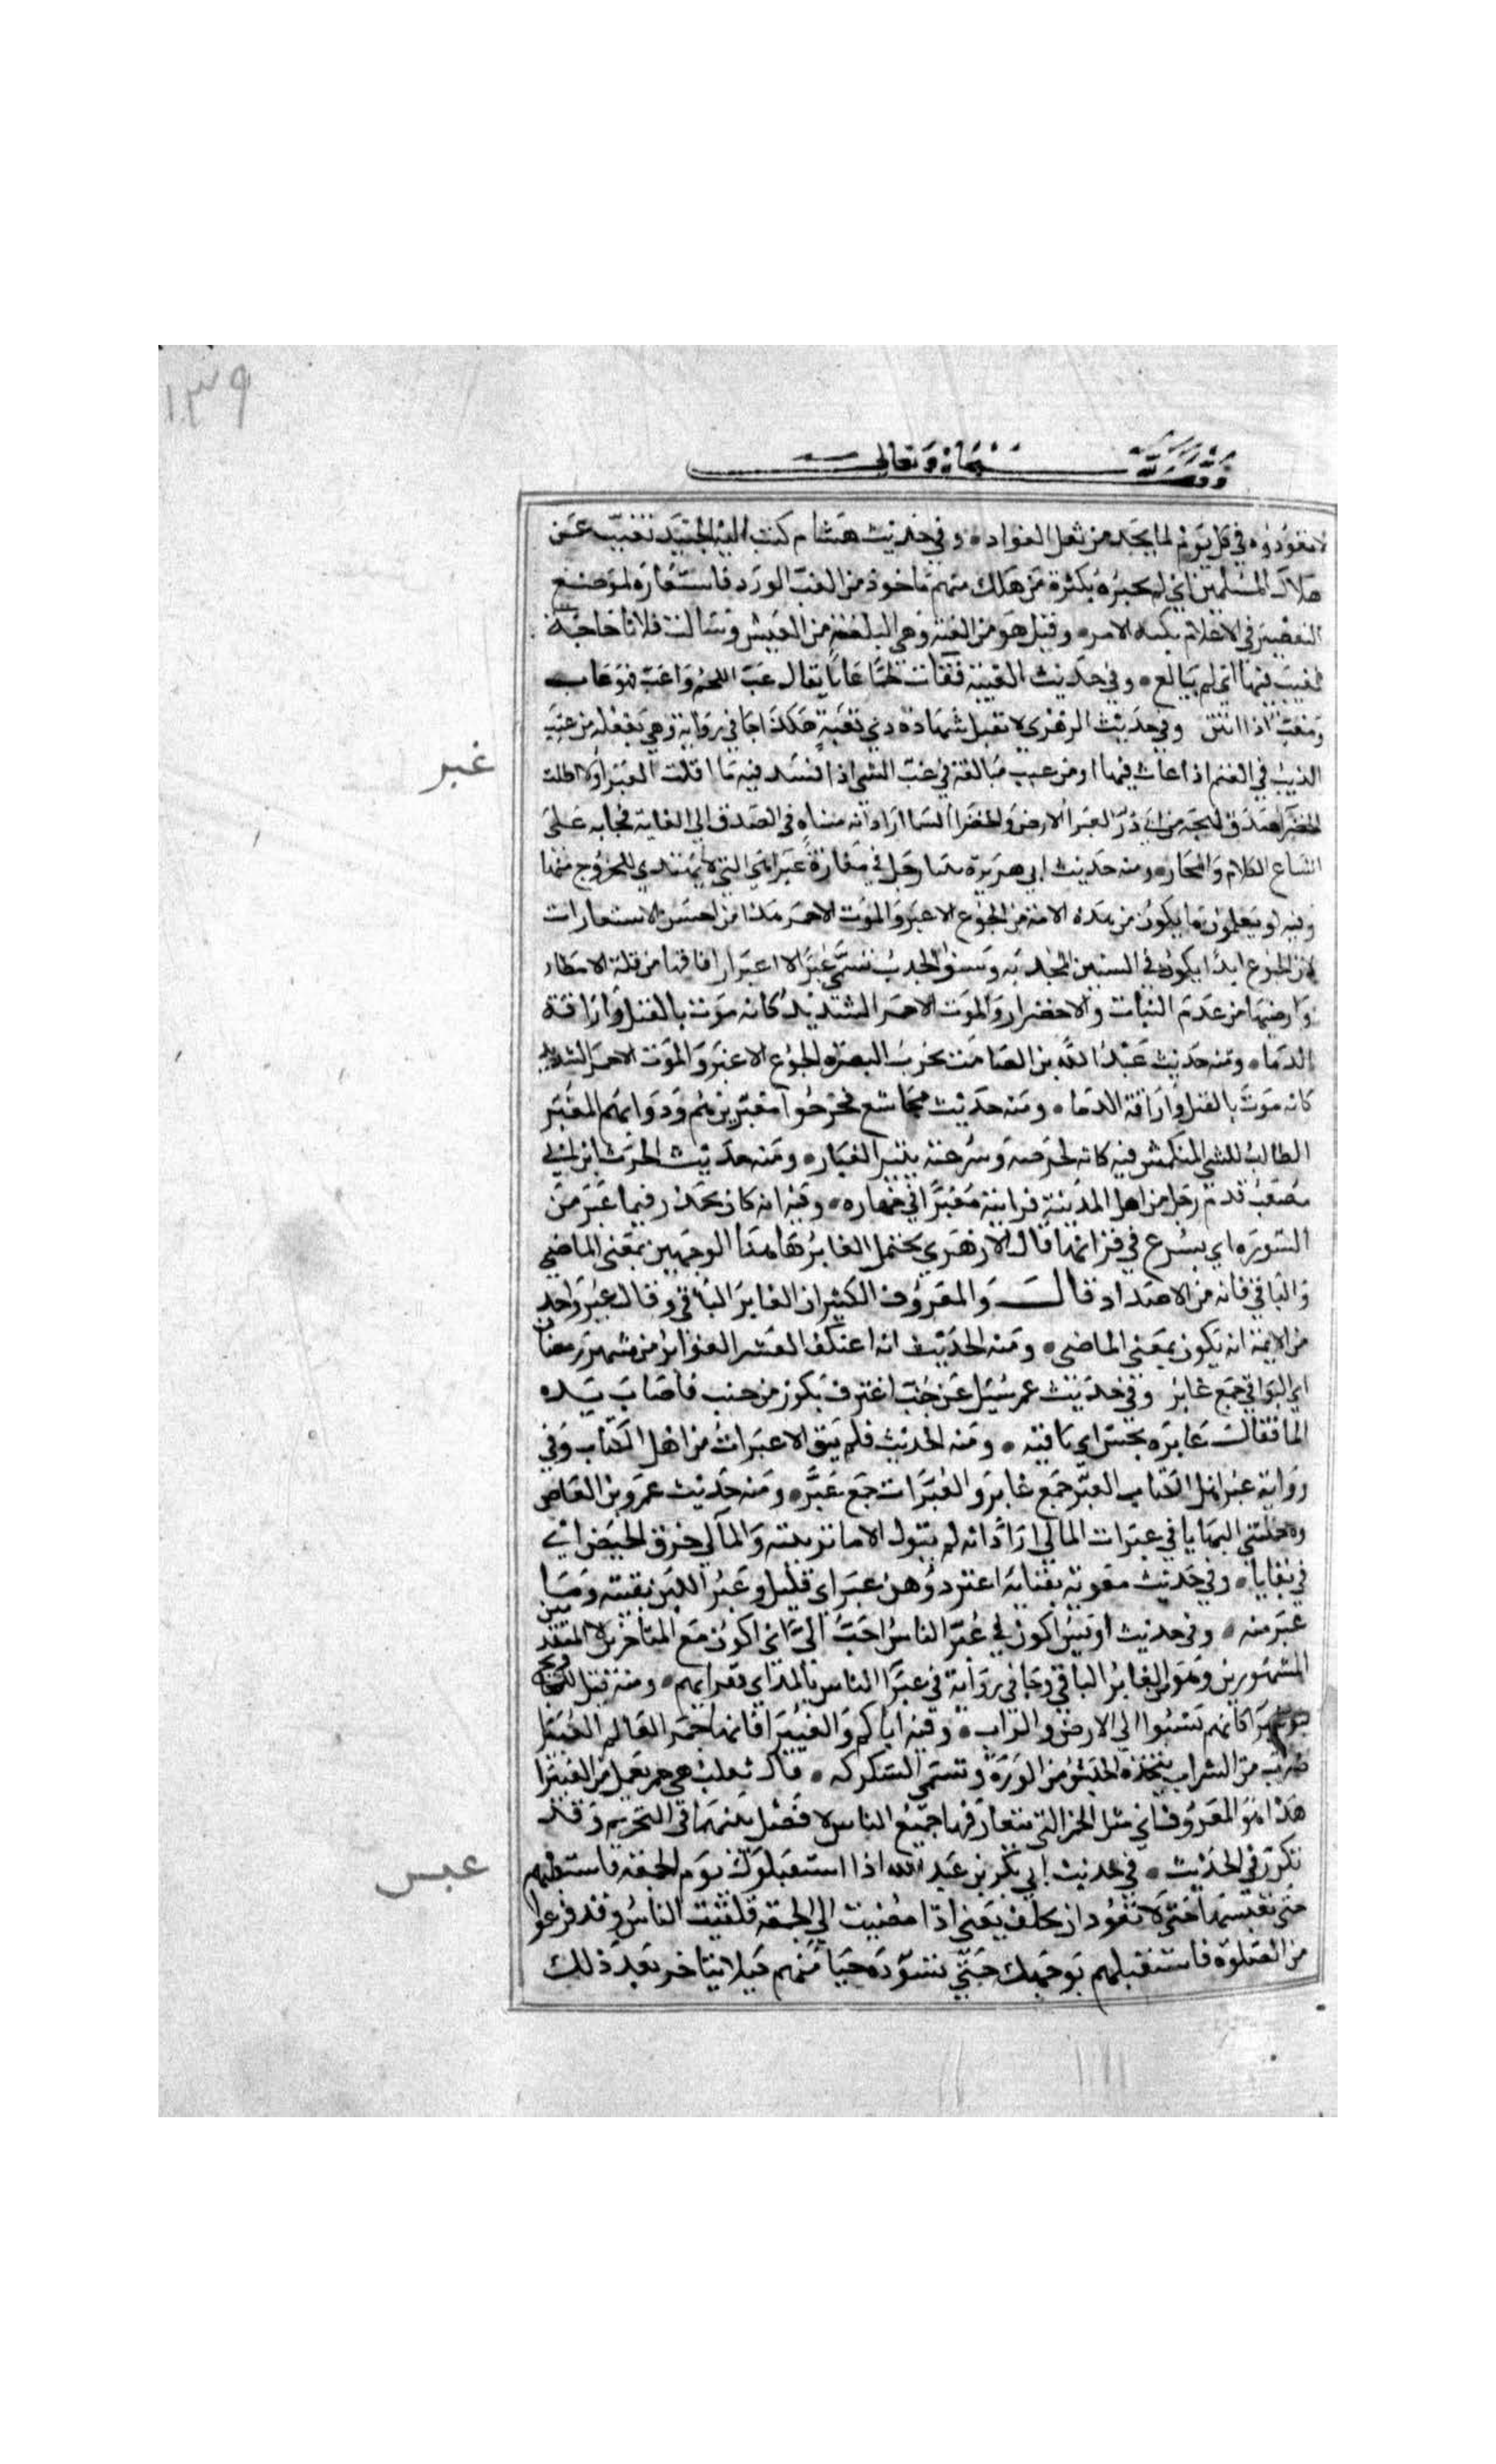 ١٣٩
وقف لله سبحانه وتعالى
لا تعودوه في كل يوم لما يجد من ثقل العواد وفي حديث هشام كتب اليه الجنيد تغبب عن
هلاك المسلمين اي لم يخبره بكثرة من هلك منهم ماخوذ من الغب الورد فاستعاره لموضع
التقصير في الاعلام بكنه الامر وقيل هو من الغبة وهي البلغة من العيش وسالت فلانا حاجة
فغبب فيها اي لم يبالغ وفي حديث الغيبة فقاءت لحما غابا يقال غب اللحم واغب فهو غاب
ومغب اذا انتن وفي حديث الزهري لا تقبل شهادة ذي تغبة هكذا جا في رواية وهي تفعلة من غبب
غبر
الذيب في الغنم اذا عاث فيها او من غبب مبالغة في غب الشي اذا فسد فيه ما اقلت الغبرا ولا اظلت
الخضرا اصدق لهجة من ابي ذر الغبرا الارض والخضرا السما اراد انه متناه في الصدق الى الغاية فجا به على
اتساع الكلام والمجاز ومنه حديث ابي هريرة بينا رجل في مفازة غبرا هي التي لا يهتدى للخروج منها
وفيه لو تعلمون ما يكون من هذه الامة من الجوع الاغبر والموت الاحمر هذا من احسن الاستعارات
لان الجوع ابدا يكون في السنين المجدبه وسنو الجدب تسمى غبرا لاغبرار افاقها من قلة الامطار
وارضيها من عدم النبات والاخضرار والموت الاحمر الشديد كانه موت بالقتل واراقة
الدما ومنه حديث عبد الله بن الصامت يخرب البصره الجوع الاغبر والموت الاحمر الشديد
كانه موت بالقتل واراقة الدما ومنه حديث مجاشع فخرجوا مغبرين هم ودوابهم المغبر
الطالب للشي المنكمش فيه كانه لحرصه وسرعته يثير الغبار ومنه حديث الحرث بن ابي
مصعب قدم رجل من اهل المدينة فرايته مغبرا في جهازه وفيه انه كان يحدر فيما غبر من
السوره اي يسرع في قراتها قال الازهري يحتمل الغابر هاهنا الوجهين بمعنى الماضي
والباقي فانه من الاضداد قال والمعروف الكثير ان الغابر الباقي وقال غير واحد
من الايمة انه يكون بمعنى الماضي ومنه الحديث انه اعتكف العشر الغوابر من شهر رمضان
اي البواقي جمع غابر وفي حديث عمر سئل عن جنب اغترف بكوز من حب فاصابت يده
الما فقال غابره نجس اي باقيه ومنه الحديث فلم يبق الا غبرات من اهل الكتاب وفي
رواية غبر اهل الكتاب الغبر جمع غابر والغبرات جمع غبر ومنه حديث عمرو بن العاص
ولا حملتني البغايا في غبرات المالي اراد انه لم يتول الاما تربيته والمالي خرق الحيض اي
في بقاياها وفي حديث معوية بفنايه اعنز درهن غبر اي قليل وغبر اللبن بقيته وما
غبر منه وفي حديث اويس اكون في غبر الناس احب الي اي اكون مع المتاخرين لا المتقدمين
المشهورين وهو من الغابر الباقي وجا في رواية في غبرا الناس بالمد اي فقرايهم ومنه قيل للمحاويج
بنو غبرا كانهم نسبوا الى الارض والتراب وفيه اياكم والغبيرا فانها خمر العالم الغبيرا
ضرب من الشراب يتخذه الحبش من الذرة وتسمى السكركه قال ثعلب هي خمر تعمل من الغبيرا
هذا هو المعروف اي مثل الخمر التي يتعارفها جميع الناس لا فصل بينهما في التحريم وقد
غبس
تكرر في الحديث في حديث ابي بكر بن عبد الله اذا استقبلوك يوم الجمعه فاستقبلهم
حتى تغبسها حتى لا تعود ان تخلف يعني اذا مضيت الى الجمعة فلقيت الناس وقد فرغوا
من الصلوة فاستقبلهم بوجهك حتى تسوده حيا منهم كيلا يتاخر بعد ذلك